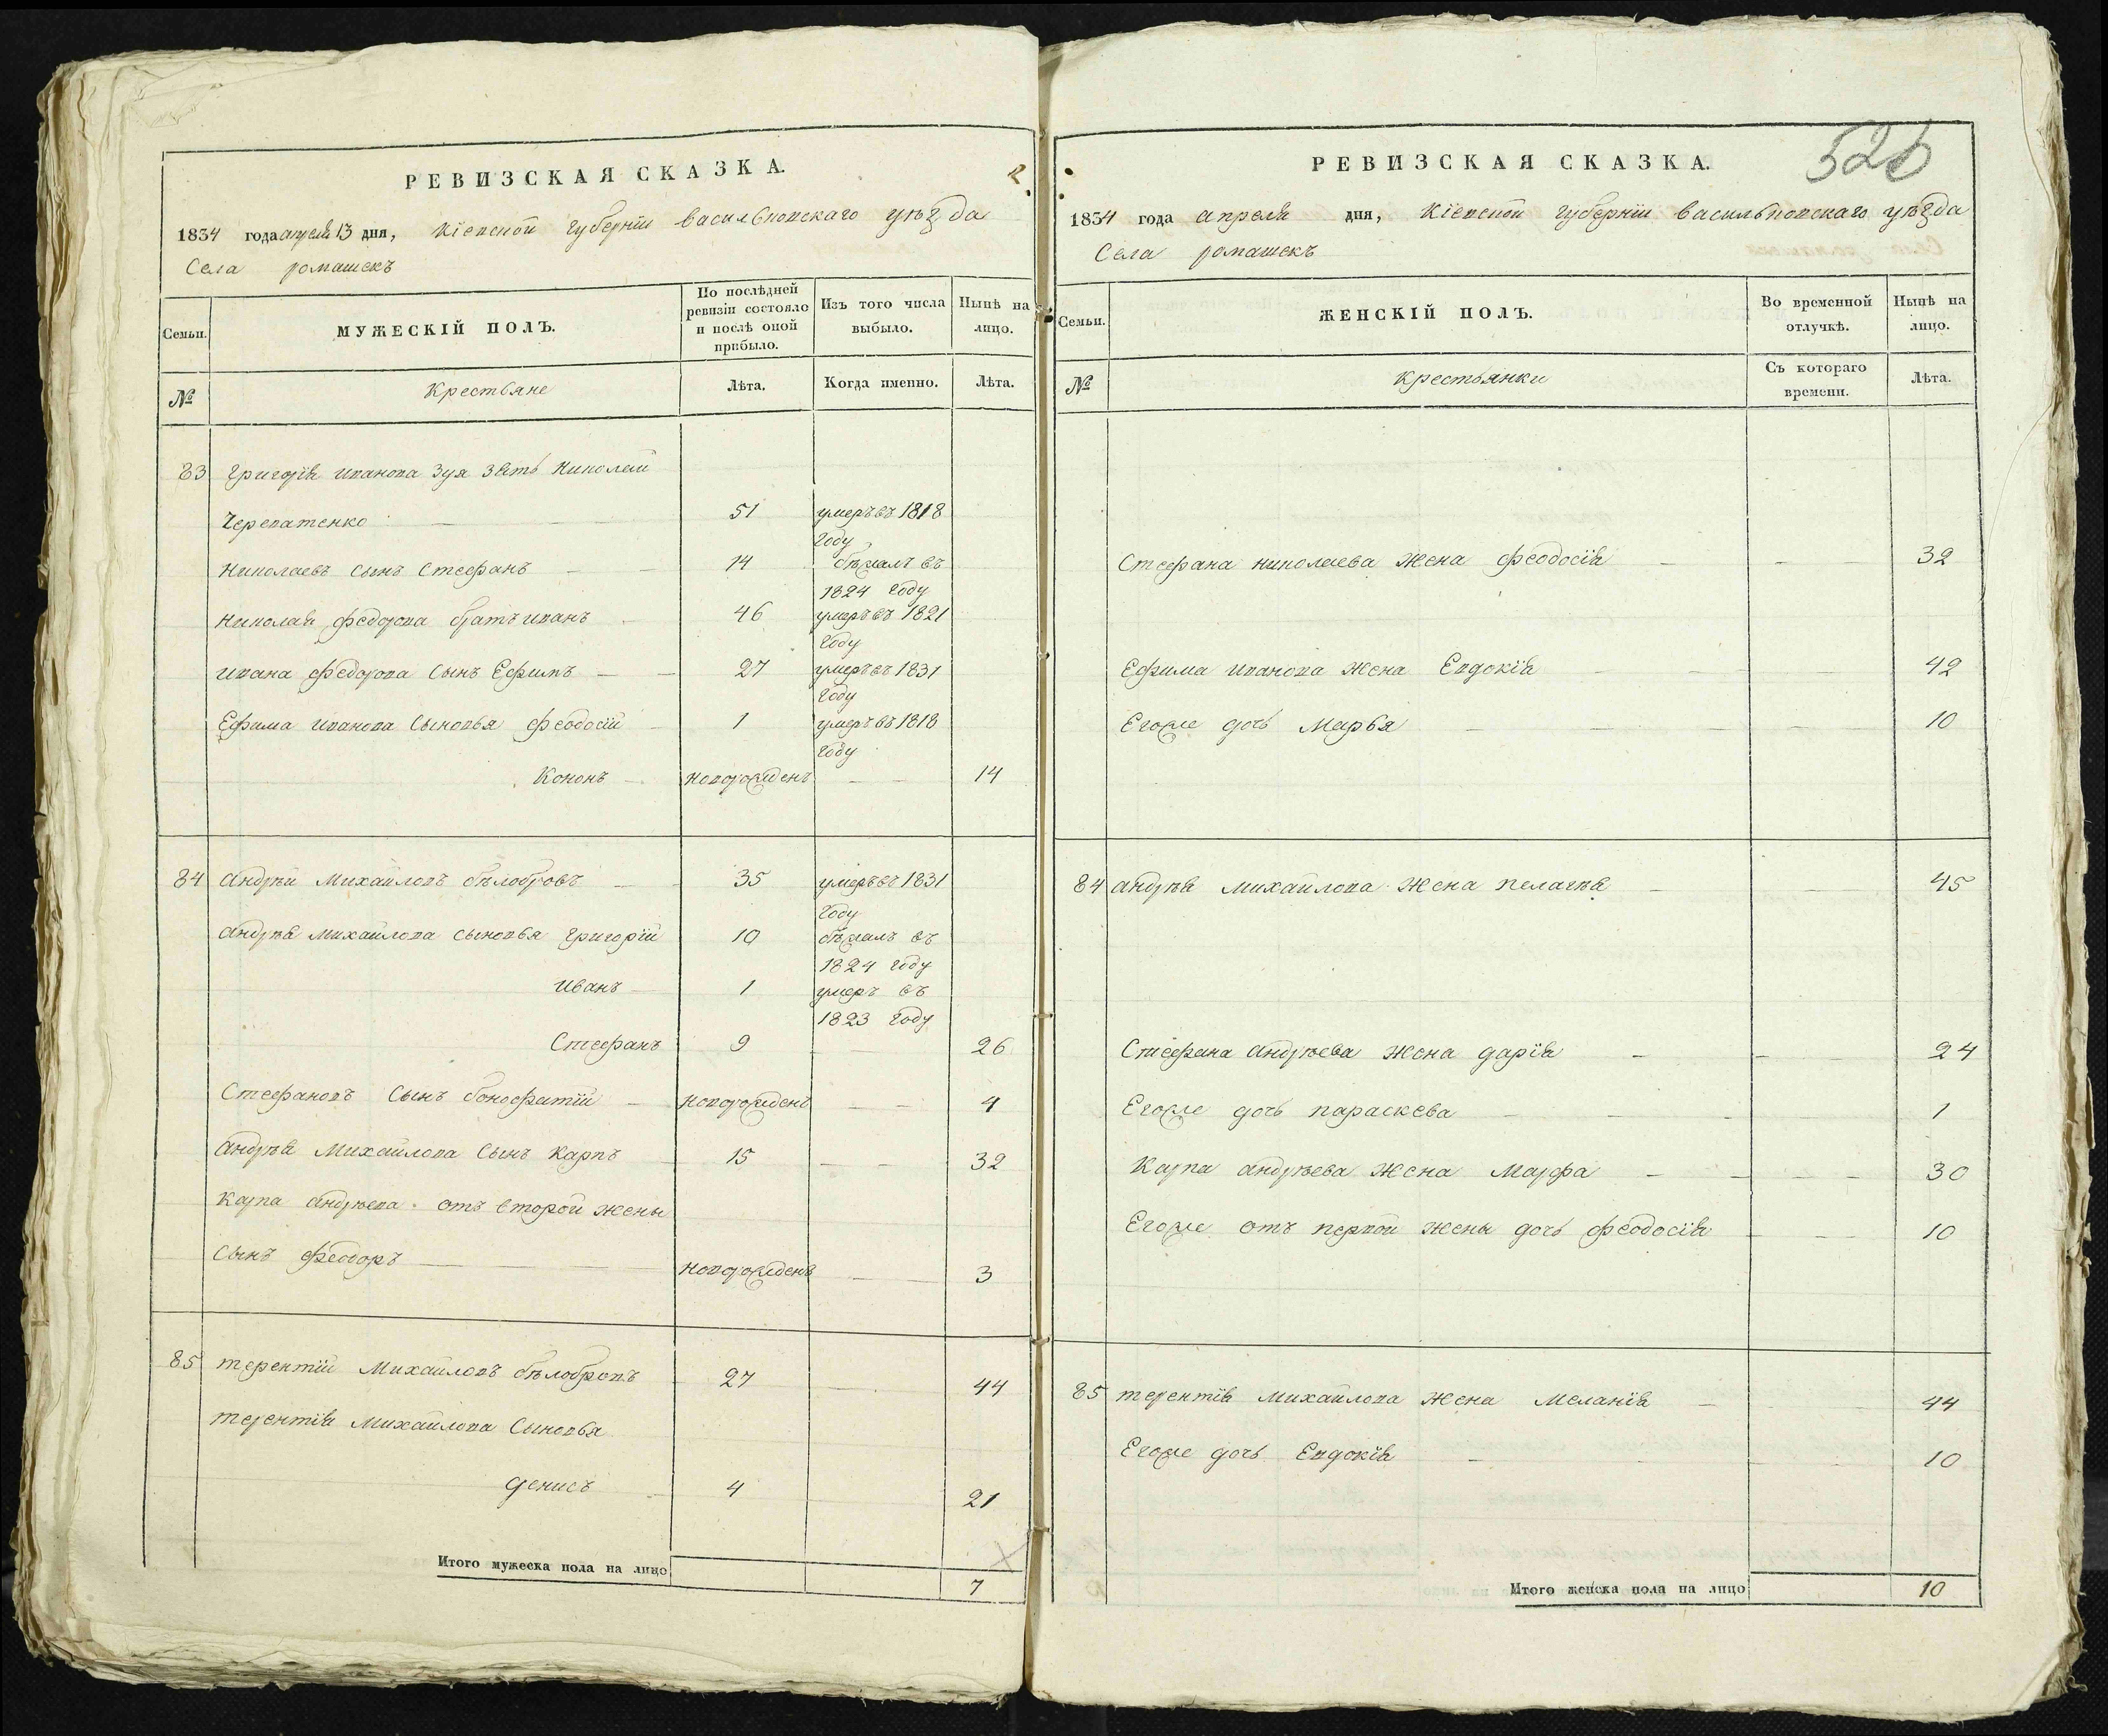 РЕВИЗСКАЯ СКАЗКА.
1834 года апреля 13 дня, Кіевской губерніи васильковскаго уѣзда
Села ромашекъ
Семьи.
МУЖЕСКІЙ ПОЛЪ.
По послѣдней
ревизіи состояло
и послѣ оной
прибыло.
Изъ того числа
выбыло.
Нынѣ на
лицо.
№
Крестьяне
Лѣта.
Когда именно.
Лѣта.
83 григорія иванова Зуя Зять Николай
Черепатенко 51 умеръ въ 1818
году
Николаевъ сынъ Стефанъ 14 бѣжалъ въ
1824 году
Николая федорова братъ иванъ 46 умеръ въ 1821
году
ивана федорова сынъ Ефимъ 27 умеръ въ 1831
году
Ефима иванова сыновья феодосій 1 умеръ въ 1818
году
Кононъ новорожденъ 14
84 андрей михайловъ бѣлобровъ 35 умеръ въ 1831
году
андрея михайлова сыновья григорій 10 бѣжалъ въ
1824 году
иванъ 1 умеръ въ
1823 году
Стефанъ 9 26
Стефановъ сынъ бонофатій новорожденъ 4
андрея михайлова сынъ карпъ 15 32
карпа андрѣева отъ второй жены
сынъ феодоръ новорожденъ 3
85 терентій михайловъ бѣлобровъ 27 44
терентія михайлова сыновья
денисъ 4 21
Итого мужеска пола на лицо 7
РЕВИЗСКАЯ СКАЗКА.
526
1834 года апреля дня, Кіевской губерніи васильковскаго уѣзда
Села ромашекъ
Семьи.
ЖЕНСКІЙ ПОЛЪ.
Во временной
отлучкѣ.
Нынѣ на
лицо.
№
крестьянки
Съ котораго
времени.
Лѣта.
Стефана николаева жена феодосія 32
Ефима иванова жена Евдокія 42
Егоже дочь марья 10
84 андрея михайлова жена пелагея 45
Стефана андрѣева жена дарія 24
Егоже дочь параскева 1
Карпа андрѣева жена марфа 30
Егоже отъ первой жены дочь феодосія 10
85 терентія михайлова жена меланія 44
Егоже дочь Евдокія 10
Итого женска пола на лицо 10